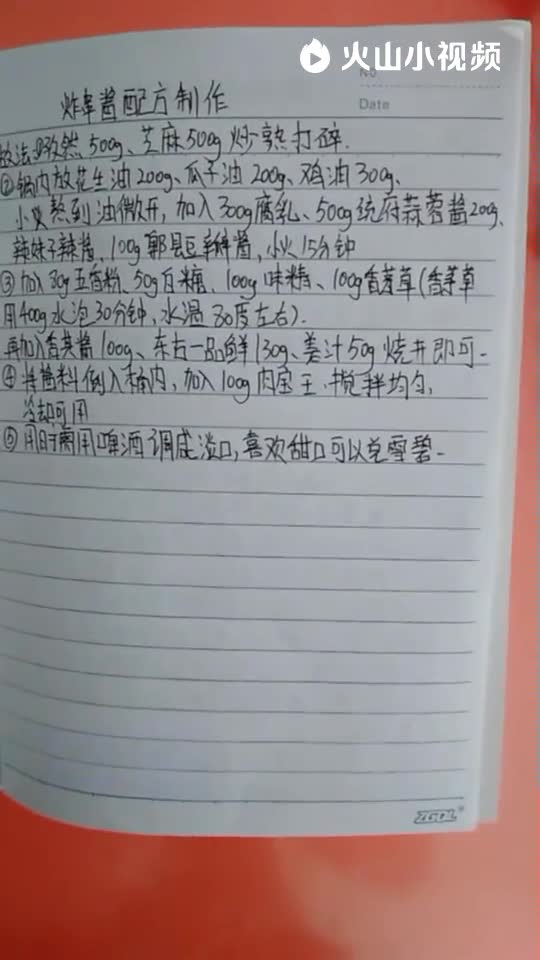 火山小视频
No
Date
炸串酱配方制作
做法①孜然500g、芝麻500g 炒熟打碎.
②锅内放花生油200g、瓜子油200g、鸡油300g、
小火熬到油微开，加入300g腐乳、500g 蒜蓉酱200g、
辣妹子辣酱，100g 郫县豆瓣酱，小火15分钟
③加入30g五香粉、50g白糖、100g味精、100g香茅草(香茅草
用400g水泡30分钟，水温80度左右).
再加入香其酱100g、东古一品鲜130g、姜汁50g 烧开即可.
④将酱料倒入桶内，加入10g肉宝王，搅拌均匀，
冷却可用
⑤用时需用啤酒调成淡口，喜欢甜口可以兑雪碧.